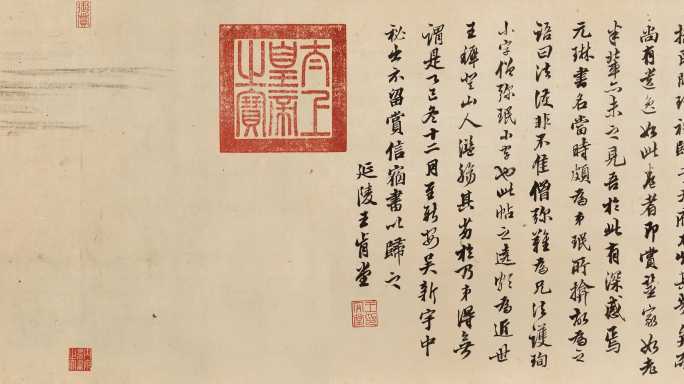 尚有遺逸如此卷者即賞鑒家如老
米輩亦未之見吾於此有深感焉
元琳書名當時頗為弟珉所掩故為之
語曰法護非不佳僧彌難為兄法護珣
小字僧彌珉小字也此帖之遠 為近世
王穉登山人濫觴其劣於乃弟得無
謂是 巳冬十二月至新安吳新宇中
秘出示留賞信宿書以歸之
延陵王肯堂
太上
皇帝
之寶